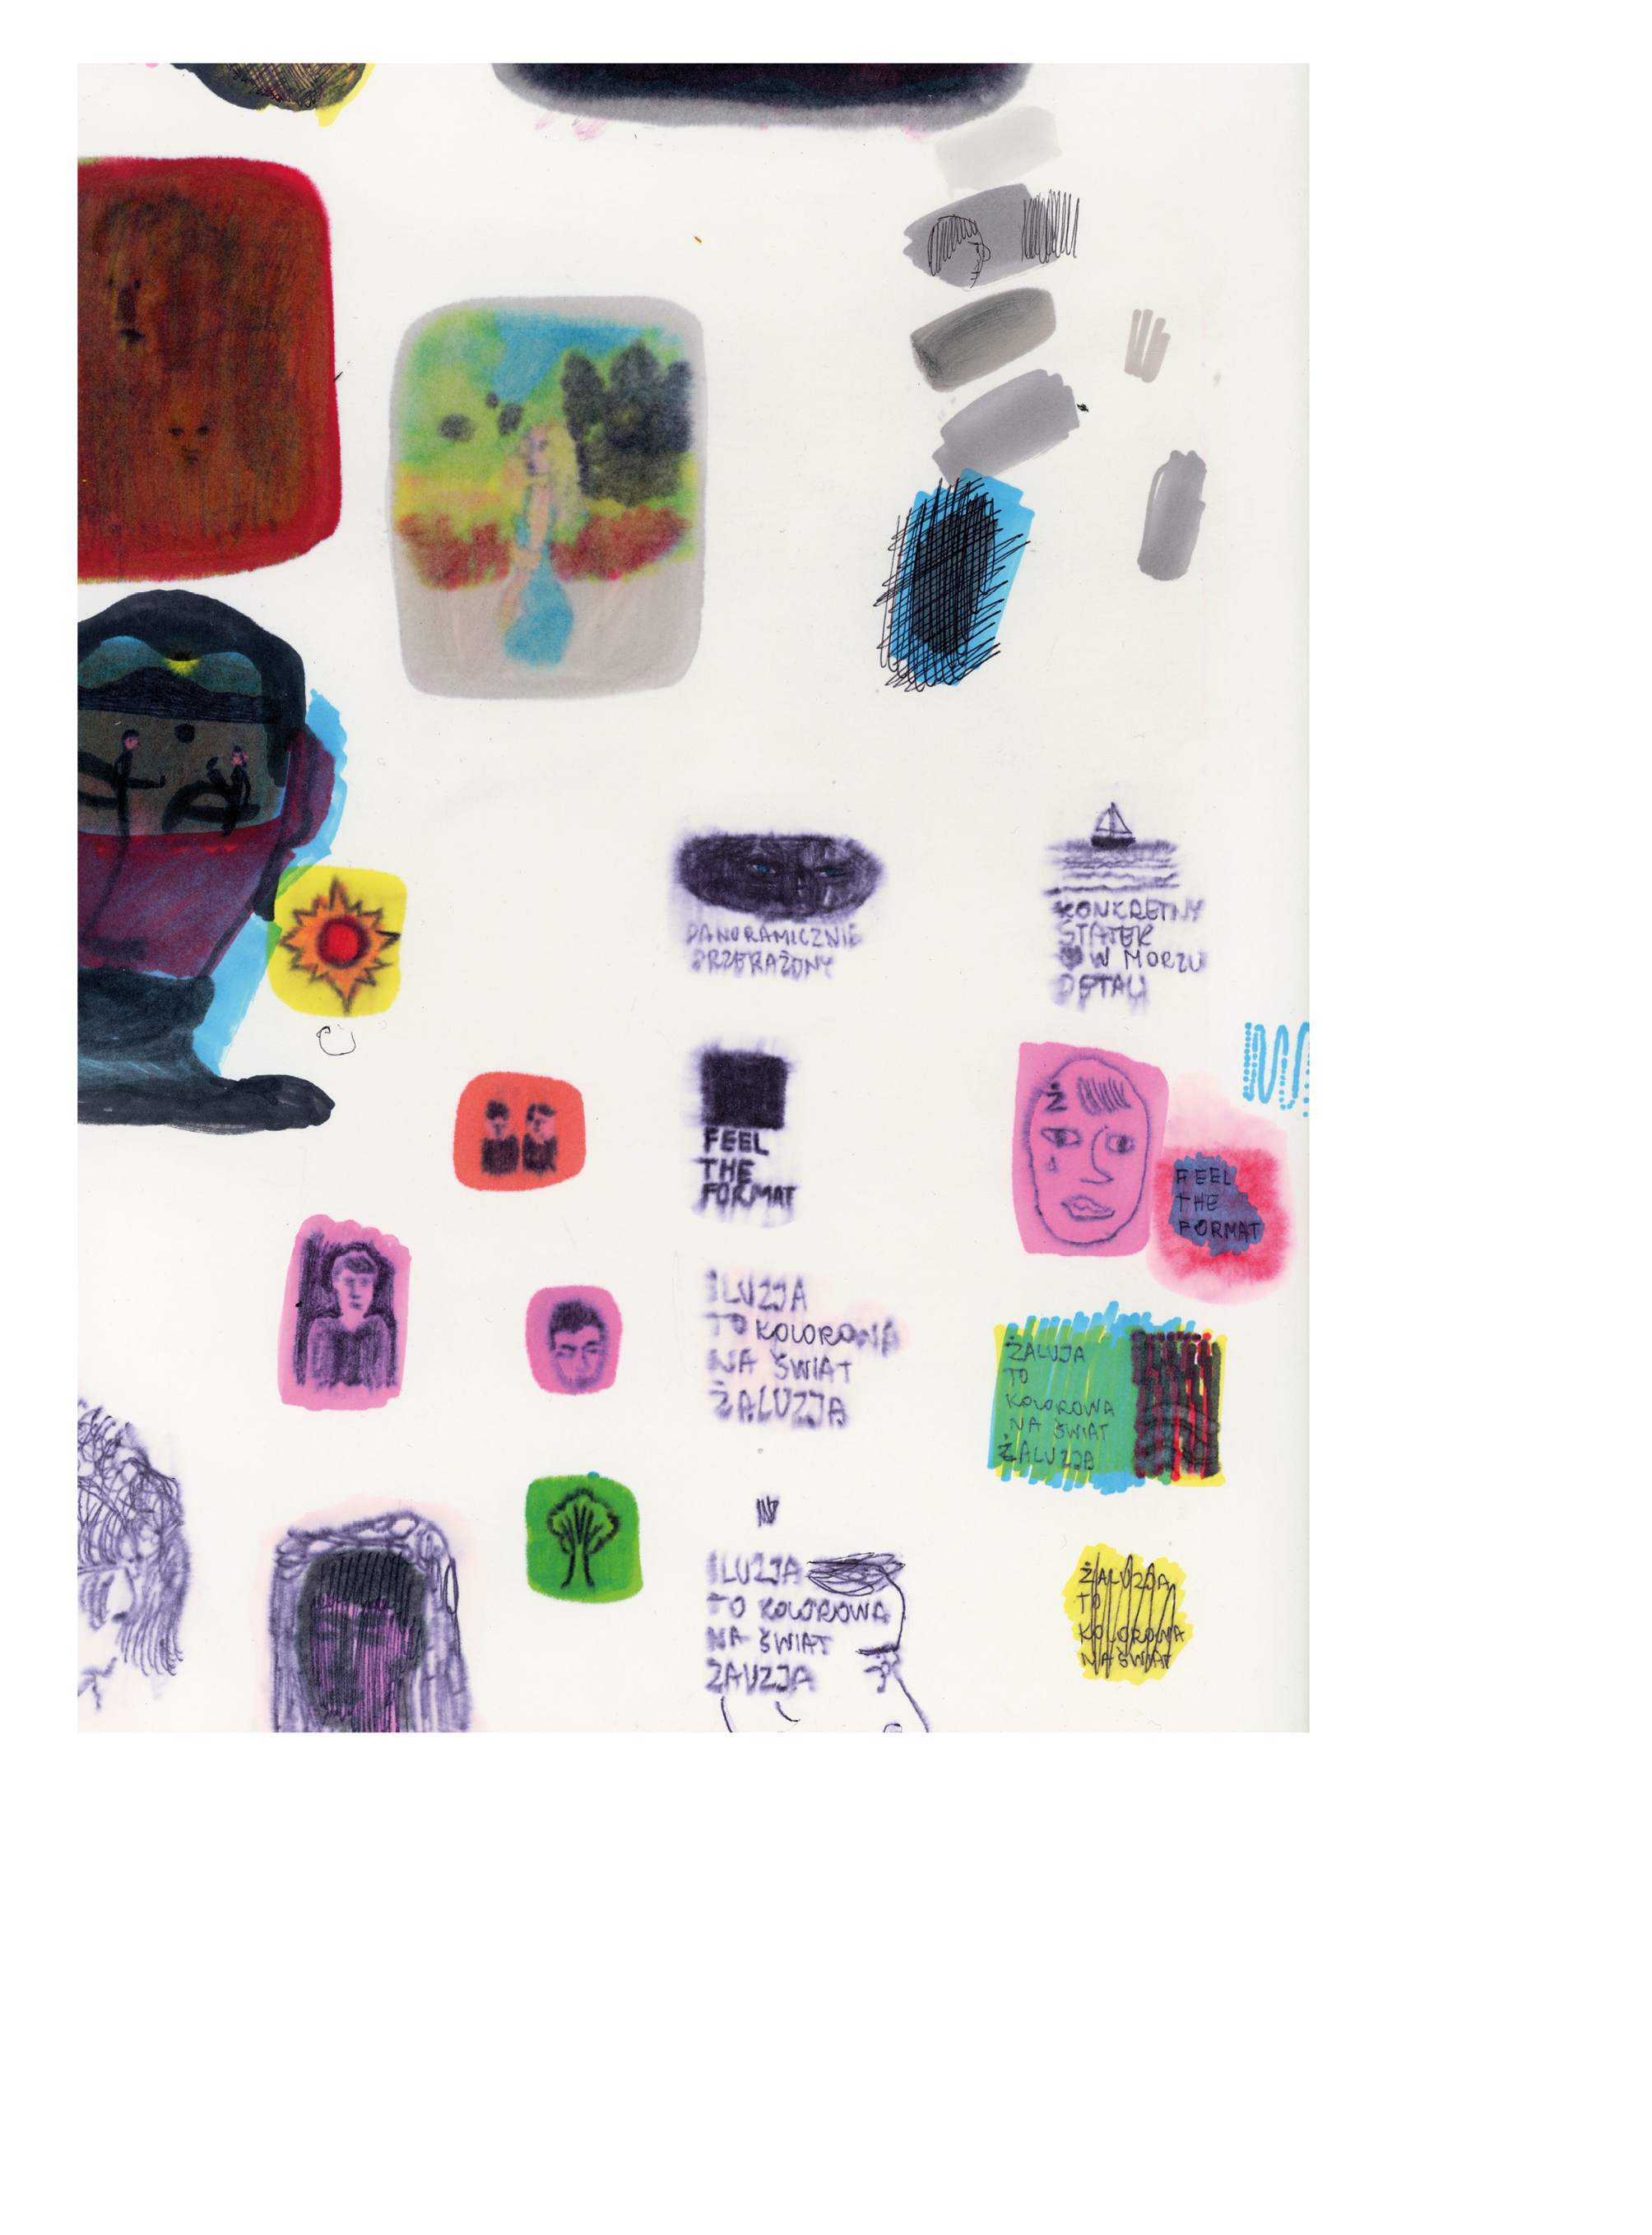 PANORAMICZNIE
PRZERAŻONY
KONKRETNY
STATEK
W MORZU
DETALI
FEEL
THE
FORMAT
Ż
FEEL
THE
FORMAT
ILUZJA
TO KOLOROWA
NA ŚWIAT
ŻALUZJA
ŻALUJA
TO
KOLOROWA
NA ŚWIAT
ŻALUZJA
ILUZJA
TO KOLOROWA
NA ŚWIAT
ŻAUZJA
ŻALUZJA
TO
KOLOROWA
NA ŚWIAT